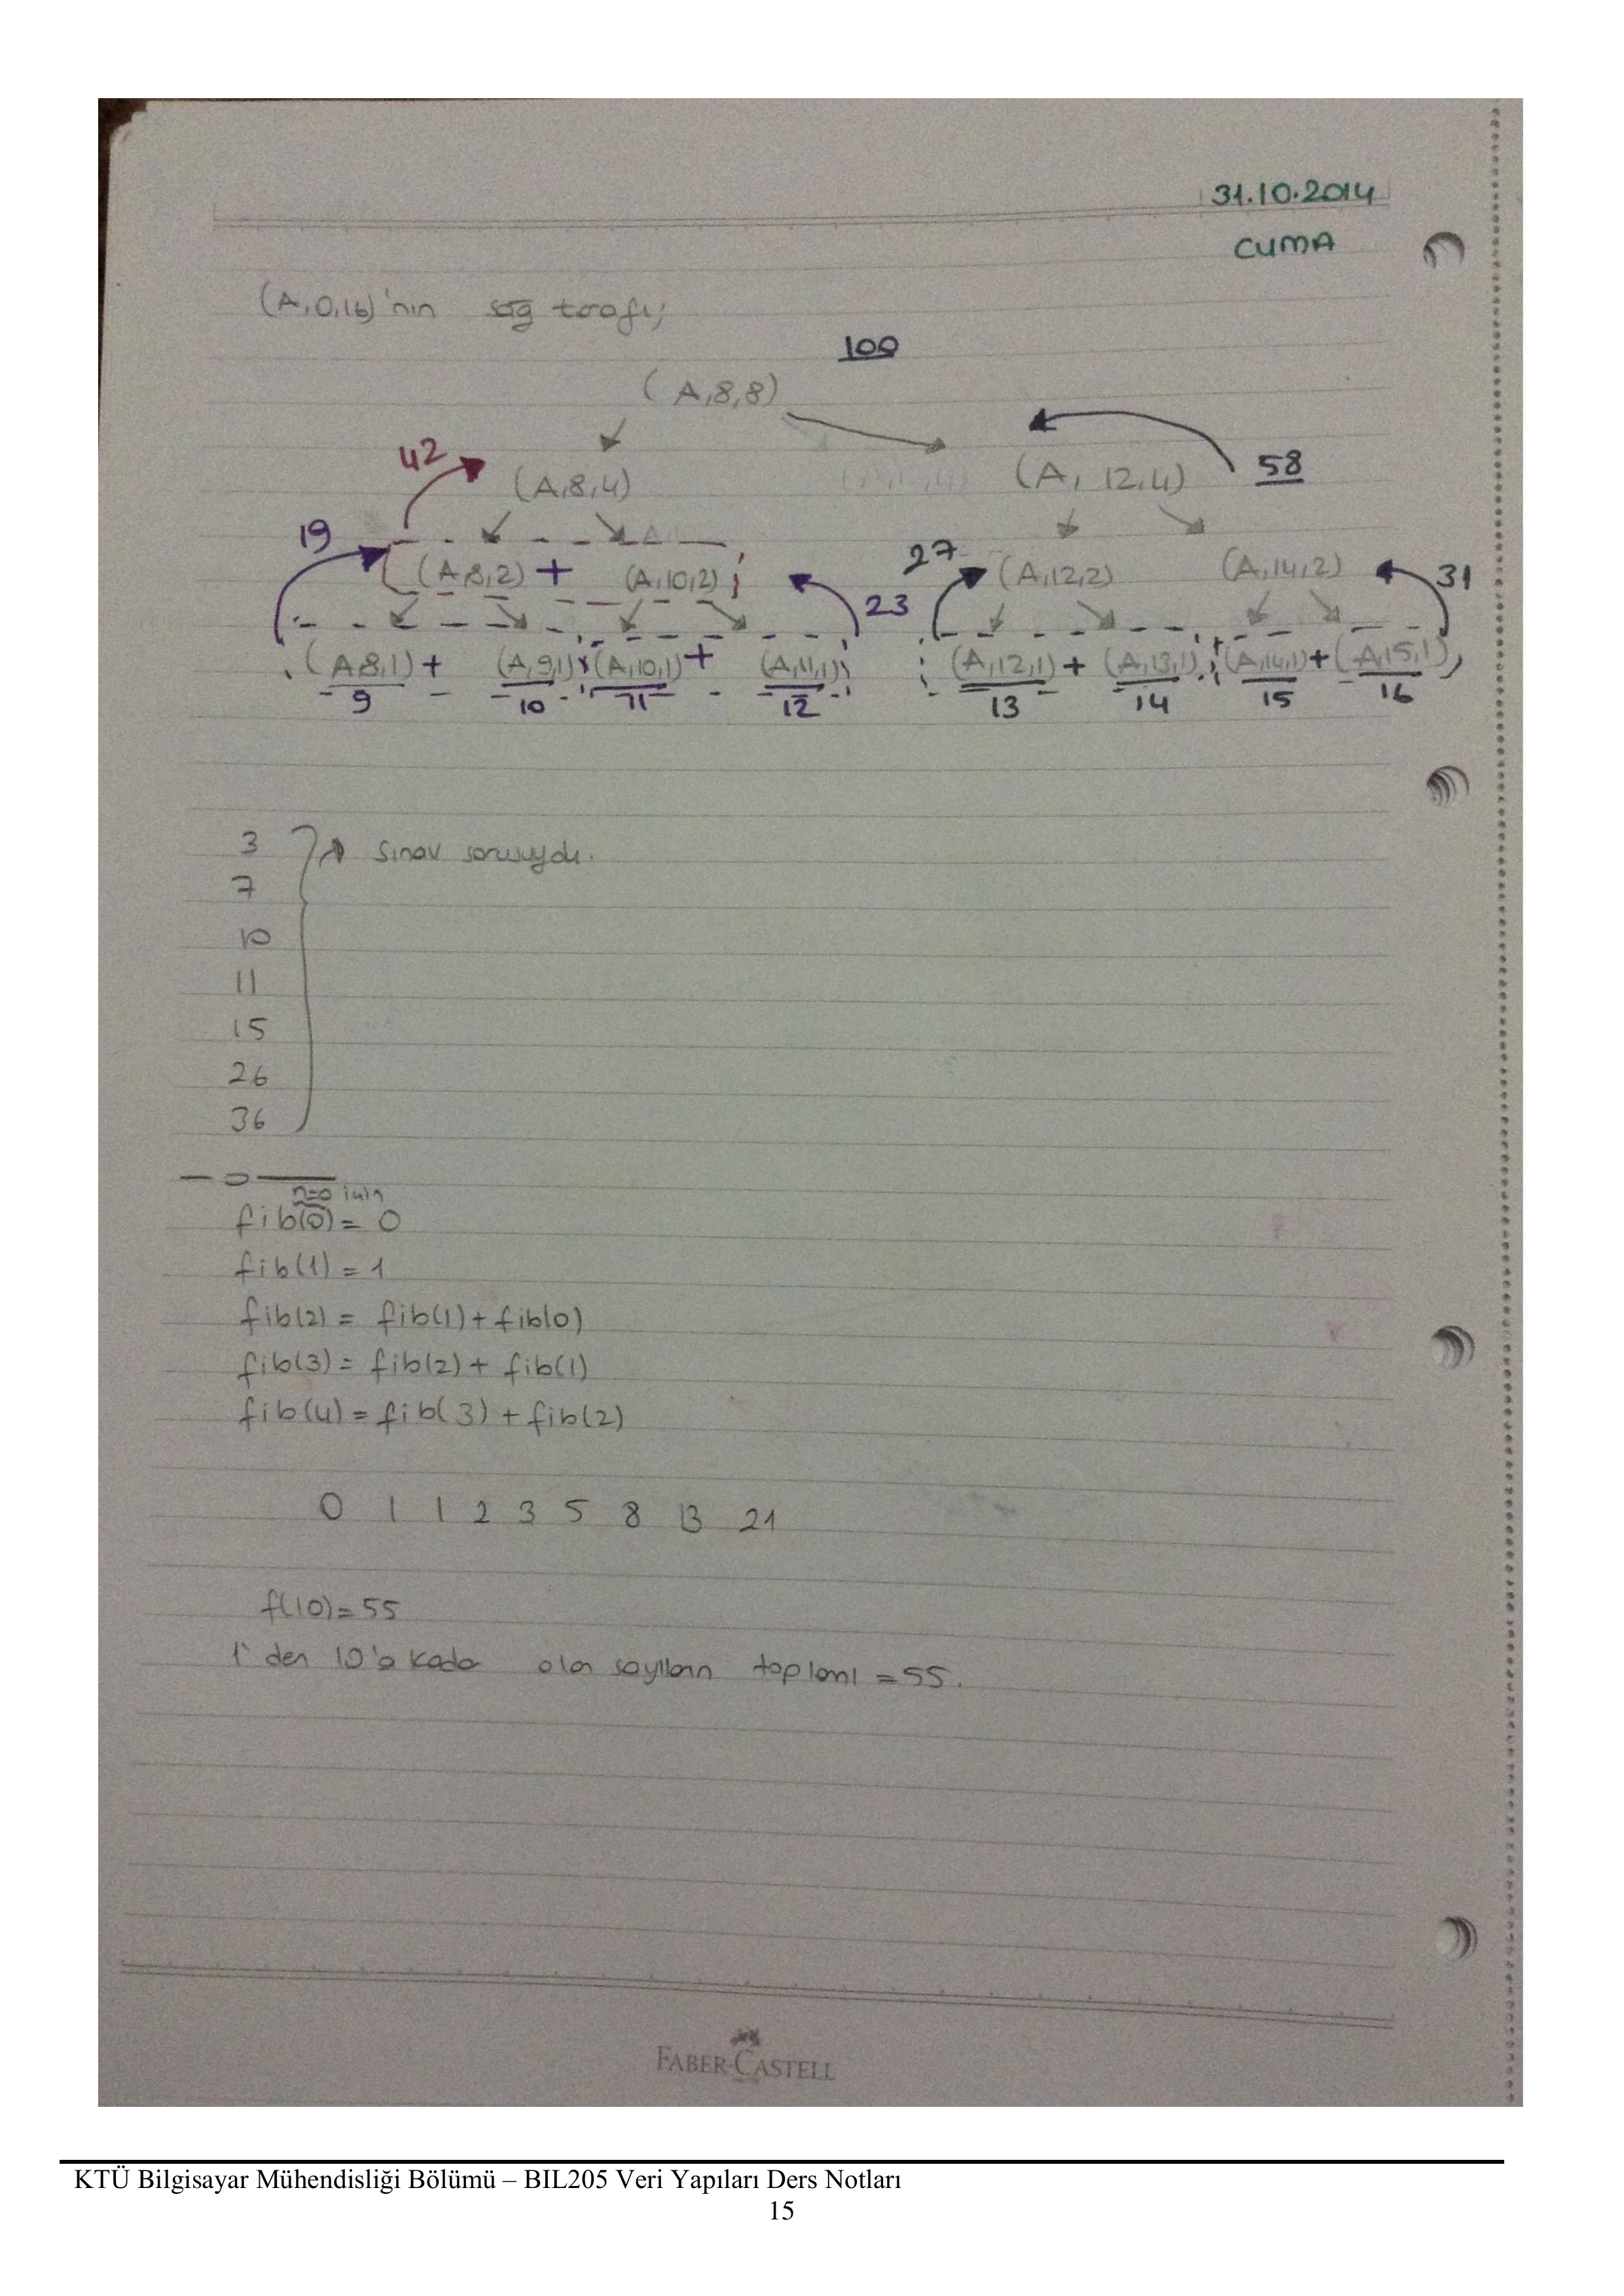 31.10.2014
CUMA
(A,0,16)'nın sağ tarafı;
100
(A,8,8)
42 (A,8,4) (A,12,4) 58
19 (A,8,2) + (A,10,2) 23 27 (A,12,2) (A,14,2) 31
(A,8,1) + (A,9,1) (A,10,1) + (A,11,1) (A,12,1) + (A,13,1) (A,14,1) + (A,15,1)
9 10 11 12 13 14 15 16
3 Sınav sorusuydu.
7
10
11
15
26
36
n=0 için
fib(0) = 0
fib(1) = 1
fib(2) = fib(1) + fib(0)
fib(3) = fib(2) + fib(1)
fib(4) = fib(3) + fib(2)
0 1 1 2 3 5 8 13 21
f(10) = 55
1'den 10'a kadar olan sayıların toplamı = 55.
FABER-CASTELL
KTÜ Bilgisayar Mühendisliği Bölümü – BIL205 Veri Yapıları Ders Notları
15